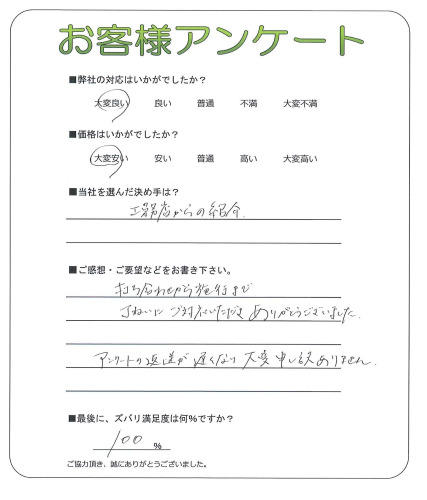 お客様アンケート
■弊社の対応はいかがでしたか？
大変良い 良い 普通 不満 大変不満
■価格はいかがでしたか？
大変安い 安い 普通 高い 大変高い
■当社を選んだ決め手は？
工務店からの紹介.
■ご感想・ご要望などをお書き下さい。
打ち合わせから施行まで
丁ねいにご対応いただき ありがとうございました.
アンケートの返送が遅くなり 大変申し訳ありません.
■最後に、ズバリ満足度は何％ですか？
100 %
ご協力頂き、誠にありがとうございました。